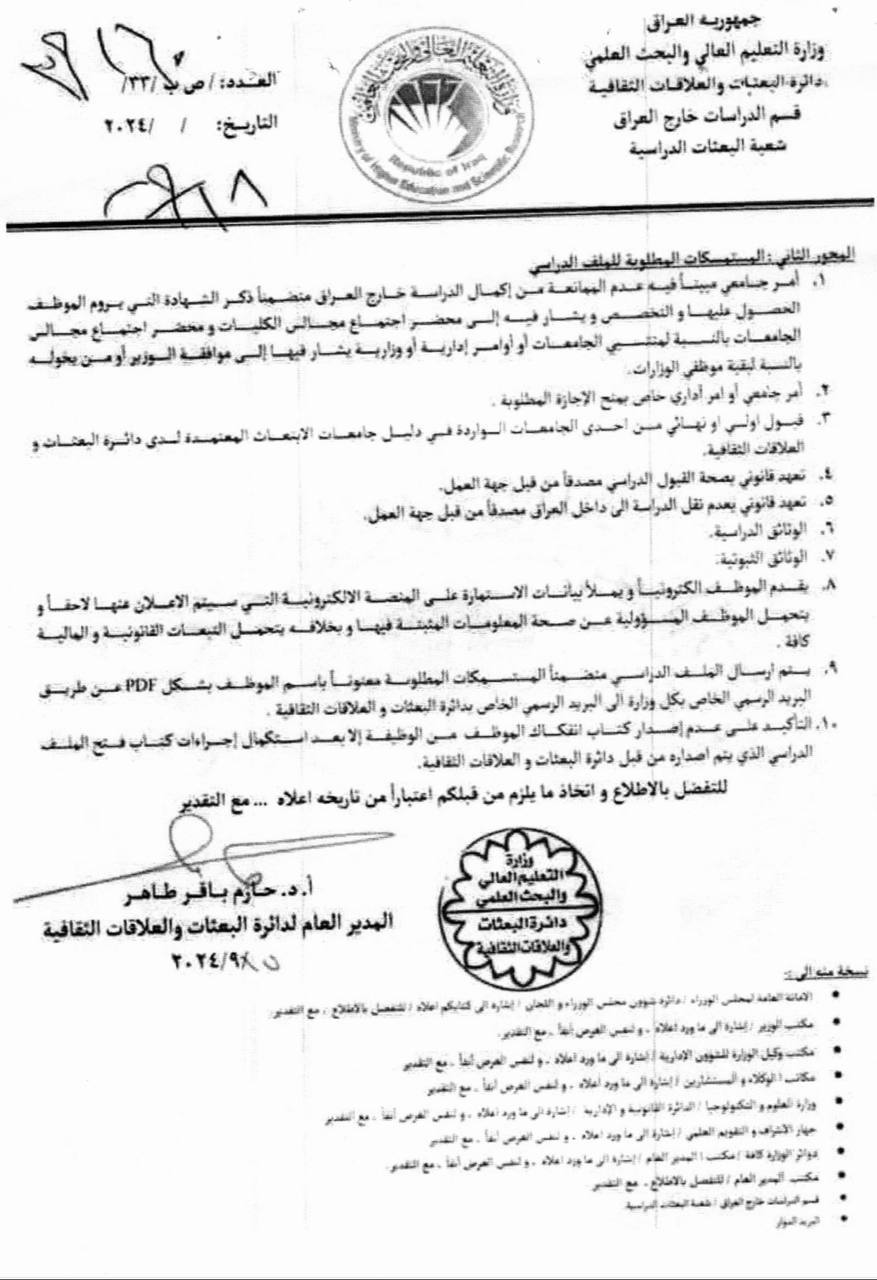 جمهورية العراق
وزارة التعليم العالي والبحث العلمي
دائرة البعثات والعلاقات الثقافية
قسم الدراسات خارج العراق
شعبة البعثات الدراسية
وزارة التعليم العالي والبحث العلمي
Republic of Iraq
Ministry of Higher Education and Scientific Research
العدد: / ص ب /٣٣/
التاريخ: / /٢٠٢٤
المحور الثاني : المستمسكات المطلوبة للملف الدراسي
١. أمر جامعي مبيناً فيه عدم الممانعة من إكمال الدراسة خارج العراق متضمناً ذكر الشهادة التي يروم الموظف
الحصول عليها و التخصص و يشار فيه إلى محضر اجتماع مجالس الكليات و محضر اجتماع مجالس
الجامعات بالنسبة لمنتسبي الجامعات أو أوامر إدارية أو وزارية يشار فيها إلى موافقة الوزير أو من يخوله
بالنسبة لبقية موظفي الوزارات.
٢. أمر جامعي أو امر أداري خاص بمنح الإجازة المطلوبة .
٣. قبول اولي او نهائي من احدى الجامعات الواردة في دليل جامعات الابتعاث المعتمدة لدى دائرة البعثات و
العلاقات الثقافية.
٤. تعهد قانوني بصحة القبول الدراسي مصدقاً من قبل جهة العمل.
٥. تعهد قانوني بعدم نقل الدراسة الى داخل العراق مصدقاً من قبل جهة العمل.
٦. الوثائق الدراسية.
٧. الوثائق الثبوتية.
٨. يقدم الموظف الكترونياً و يملأ بيانات الاستمارة على المنصة الالكترونية التي سيتم الاعلان عنها لاحقاً و
يتحمل الموظف المسؤولية عن صحة المعلومات المثبتة فيها و بخلافه يتحمل التبعات القانونية و المالية
كافة .
٩. يتم ارسال الملف الدراسي متضمناً المستمسكات المطلوبة معنوناً باسم الموظف بشكل PDF عن طريق
البريد الرسمي الخاص بكل وزارة الى البريد الرسمي الخاص بدائرة البعثات و العلاقات الثقافية .
١٠. التأكيد على عدم إصدار كتاب انفكاك الموظف من الوظيفة إلا بعد استكمال إجراءات كتاب فتح الملف
الدراسي الذي يتم اصداره من قبل دائرة البعثات و العلاقات الثقافية.
للتفضل بالاطلاع و اتخاذ ما يلزم من قبلكم اعتباراً من تاريخه اعلاه ... مع التقدير
أ. د. حازم باقر طاهر
المدير العام لدائرة البعثات والعلاقات الثقافية
٢٠٢٤/٩/
وزارة
التعليم العالي
والبحث العلمي
دائرة البعثات
والعلاقات الثقافية
نسخة منه الى :
• الامانة العامة لمجلس الوزراء / دائرة شؤون مجلس الوزراء و اللجان / إشارة الى كتابكم اعلاه / للتفضل بالاطلاع ، مع التقدير.
• مكتب الوزير / إشارة الى ما ورد اعلاه ، و لنفس الغرض آنفاً ، مع التقدير.
• مكتب وكيل الوزارة للشؤون الإدارية / إشارة الى ما ورد اعلاه ، و لنفس الغرض آنفاً ، مع التقدير
• مكاتب / الوكلاء و المستشارين / إشارة الى ما ورد أعلاه ، و لنفس الغرض آنفاً ، مع التقدير
• وزارة العلوم و التكنولوجيا / الدائرة القانونية و الإدارية / إشارة الى ما ورد اعلاه ، و لنفس الغرض آنفاً ، مع التقدير
• جهاز الاشراف و التقويم العلمي / إشارة الى ما ورد اعلاه ، و لنفس الغرض آنفاً ، مع التقدير
• دوائر الوزارة كافة / مكتب المدير العام / إشارة الى ما ورد اعلاه ، و لنفس الغرض آنفاً ، مع التقدير.
• مكتب المدير العام / للتفضل بالاطلاع ، مع التقدير
• قسم الدراسات خارج العراق / شعبة البعثات الدراسية.
• البريد الدوار